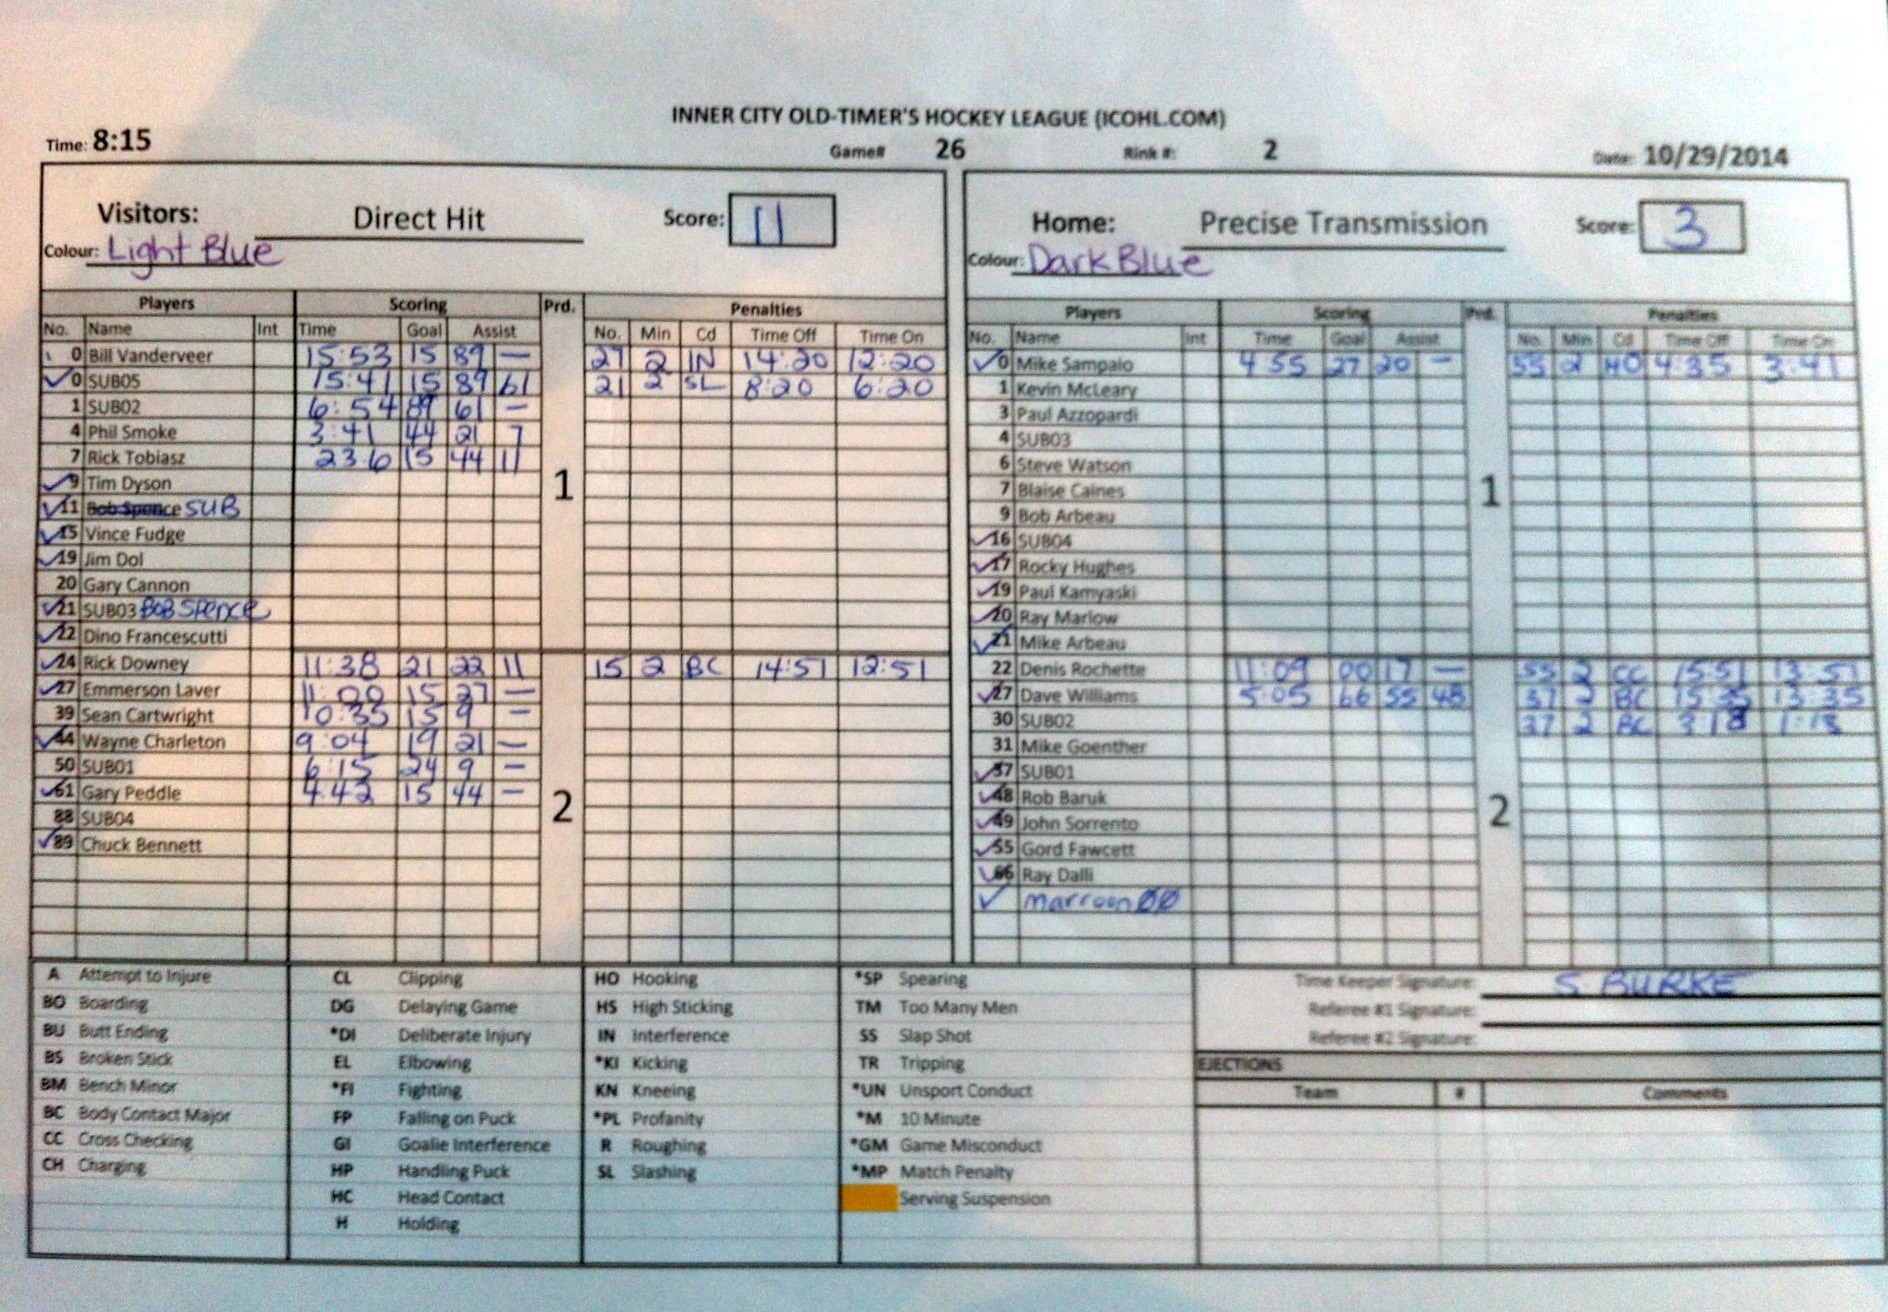 INNER CITY OLD-TIMER'S HOCKEY LEAGUE (ICOHL.COM)
Time: 8:15 Game# 26 Rink #: 2 Date: 10/29/2014
Visitors: Direct Hit Score: 11
Colour: Light Blue
Players Scoring Prd. Penalties
No. Name Int Time Goal Assist No. Min Cd Time Off Time On
0 Bill Vanderveer 15:53 15 89 — 27 2 IN 14:20 12:20
✓ 0 SUB05 15:41 15 89 61 21 2 SL 8:20 6:20
1 SUB02 6:54 89 61 —
4 Phil Smoke 3:41 44 21 7
7 Rick Tobiasz 236 15 44 11
✓ 9 Tim Dyson
✓ 11 Bob Spence SUB
✓ 15 Vince Fudge
✓ 19 Jim Dol
20 Gary Cannon
✓ 21 SUB03 BOB Spence
✓ 22 Dino Francescutti
1
✓ 24 Rick Downey 11:38 21 22 11 15 2 BC 14:51 12:51
✓ 27 Emmerson Laver 11:00 15 27 —
39 Sean Cartwright 10:35 15 9 —
✓ 44 Wayne Charleton 9:04 19 21 —
50 SUB01 6:15 24 9 —
✓ 61 Gary Peddle 4:42 15 44 —
88 SUB04
✓ 89 Chuck Bennett
2
Home: Precise Transmission Score: 3
Colour: Dark Blue
Players Scoring Prd. Penalties
No. Name Int Time Goal Assist No. Min Cd Time Off Time On
✓ 0 Mike Sampaio 4 55 27 20 — 55 2 HO 4:35 3:41
1 Kevin McLeary
3 Paul Azzopardi
4 SUB03
6 Steve Watson
7 Blaise Caines
9 Bob Arbeau
✓ 16 SUB04
✓ 17 Rocky Hughes
✓ 19 Paul Kamyaski
✓ 20 Ray Marlow
✓ 21 Mike Arbeau
1
22 Denis Rochette 11:09 00 17 — 55 2 CC 15:51 13:51
✓ 27 Dave Williams 5:05 66 55 48 37 2 BC 15:35 13:35
30 SUB02 37 2 BC 3:18 1:18
31 Mike Goenther
✓ 37 SUB01
✓ 48 Rob Baruk
✓ 49 John Sorrento
✓ 55 Gord Fawcett
✓ 66 Ray Dalli
✓ marroon 00
2
A Attempt to Injure
BO Boarding
BU Butt Ending
BS Broken Stick
BM Bench Minor
BC Body Contact Major
CC Cross Checking
CH Charging
CL Clipping
DG Delaying Game
*DI Deliberate Injury
EL Elbowing
*FI Fighting
FP Falling on Puck
GI Goalie Interference
HP Handling Puck
HC Head Contact
H Holding
HO Hooking
HS High Sticking
IN Interference
*KI Kicking
KN Kneeing
*PL Profanity
R Roughing
SL Slashing
*SP Spearing
TM Too Many Men
SS Slap Shot
TR Tripping
*UN Unsport Conduct
*M 10 Minute
*GM Game Misconduct
*MP Match Penalty
Serving Suspension
Time Keeper Signature: S. BURKE
Referee #1 Signature:
Referee #2 Signature:
EJECTIONS
Team # Comments